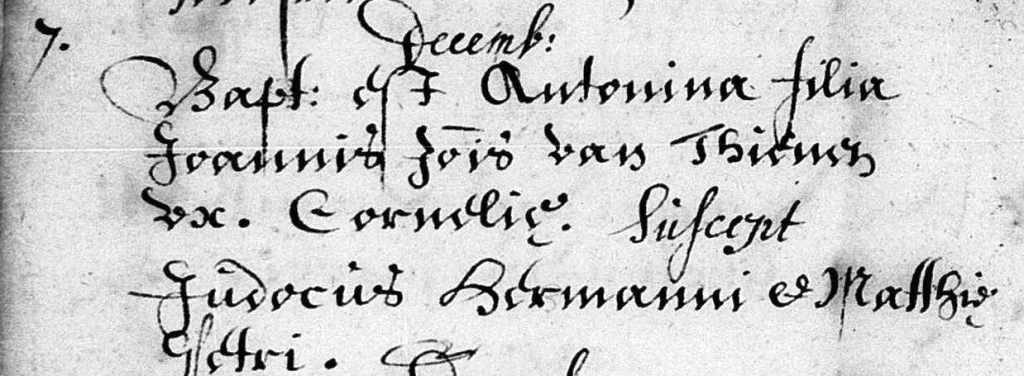 7. Decemb:
Bapt: est Antonina filia
Joannis Jōis van Thienen
vx. Cornelię. Suscept
Judocus Hermanni & Matthię
Petri.